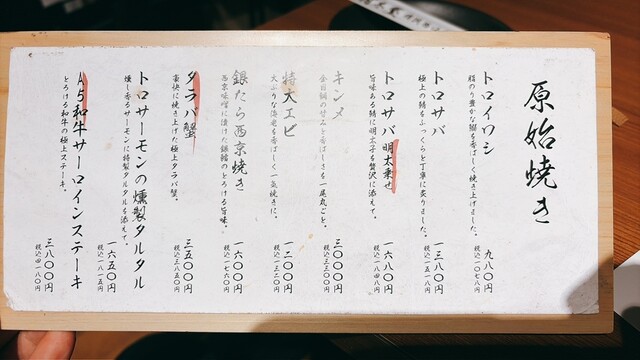 原始焼き
トロイワシ
脂のり豊かな鰯を香ばしく焼き上げました。
九八〇円
税込一〇七八円
トロサバ
極上の鯖をふっくらと丁寧に炙りました。
一三八〇円
税込一五一八円
トロサバ明太乗せ
旨味ある鯖に明太子を贅沢に添えて。
一六八〇円
税込一八四八円
キンメ
金目鯛の甘みと香ばしさを一尾丸ごと。
三〇〇〇円
税込三三〇〇円
特大エビ
大ぶりな海老を香ばしく一気焼きに。
一二〇〇円
税込一三二〇円
銀だら西京焼き
西京味噌に漬けた銀鱈のとろける旨味。
一六〇〇円
税込一七六〇円
タラバ蟹
豪快に焼き上げた極上タラバ蟹。
三五〇〇円
税込三八五〇円
トロサーモンの燻製タルタル
燻し香るサーモンに特製タルタルを添えて。
一六五〇円
税込一八一五円
A5和牛サーロインステーキ
とろける和牛の極上ステーキ。
三八〇〇円
税込四一八〇円